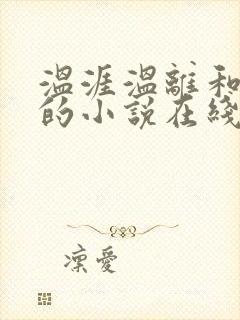 温涯温離和
的小說在綫
凛愛